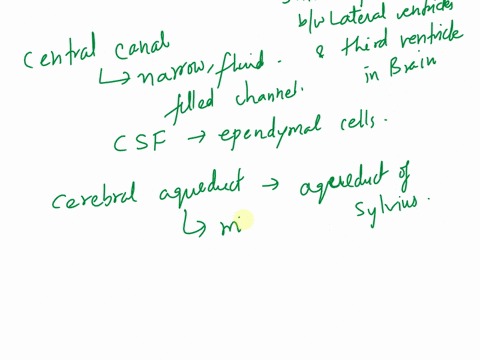 b/w Lateral ventricles
& third ventricle
in Brain
Central canal
↳ narrow, fluid.
filled channel.
CSF → ependymal cells.
Cerebral aqueduct → aqueduct of
Sylvius.
↳ mi